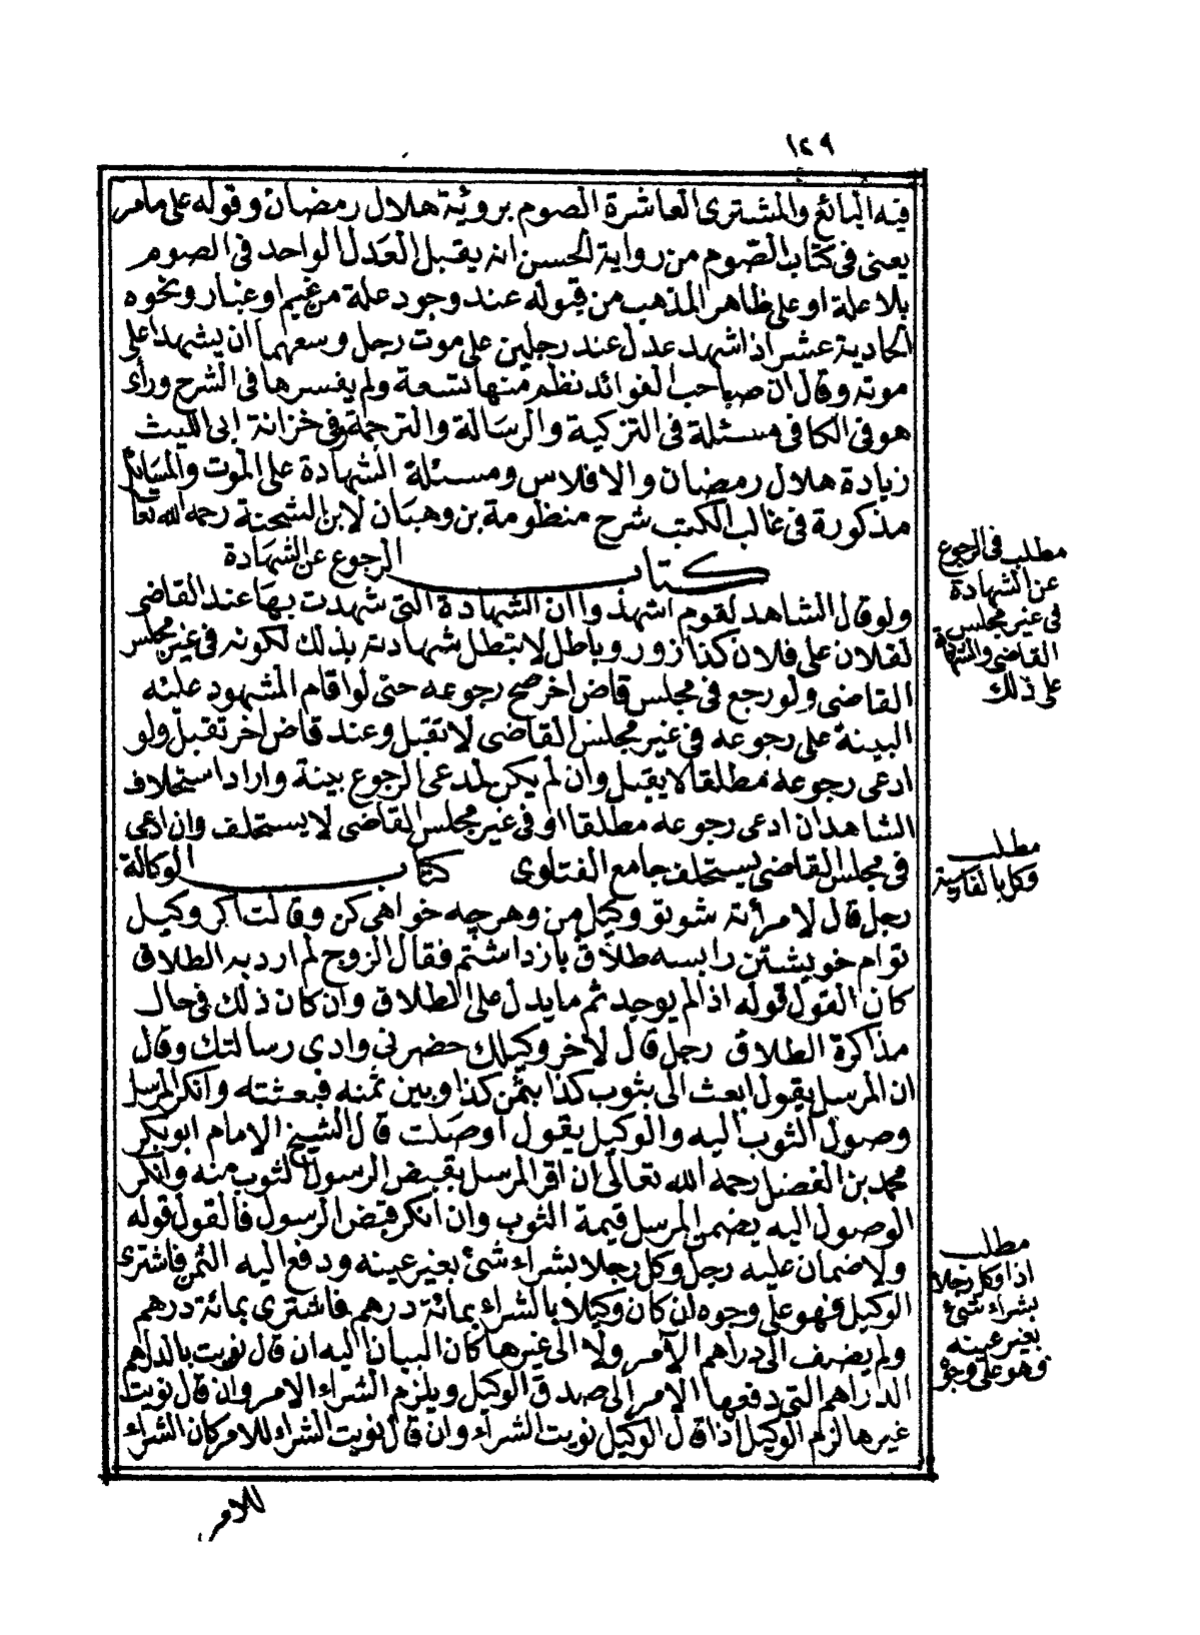 ١٤٩
فيه البائع والمشترى العاشرة الصوم بروئية هلال رمضان وقوله على ما مر
يعنى فى كتاب الصوم من رواية الحسن انه يقبل العدل الواحد فى الصوم
بلا علة او على ظاهر المذهب من قبوله عند وجود علة من غيم او غبار ونحوه
الحادية عشر اذا شهد عدل عند رجلين على موت رجل وسعهما ان يشهدا على
موته وقال ان صاحب الفوائد نظم منها تسعة ولم يفسرها فى الشرح ورأى
هو فى الكافى مسئلة فى التزكية والرسالة والترجمة وفى خزانة ابى الليث
زيادة هلال رمضان والافلاس ومسئلة الشهادة على الموت والمسائل
مذكورة فى غالب الكتب شرح منظومة بن وهبان لابن الشحنة رحمه الله تعا
كتاب الرجوع عن الشهادة
مطلب فى الرجوع
عن الشهادة
فى غير مجلس
القاضى والشهادة
على ذلك
ولو قال الشاهد لقوم اشهدوا ان الشهادة التى شهدت بها عند القاضى
لفلان على فلان كذا زور وباطل لا تبطل شهادته بذلك لكونه فى غير مجلس
القاضى ولو رجع فى مجلس قاض اخر صح رجوعه حتى لو اقام المشهود عليه
البينة على رجوعه فى غير مجلس القاضى لا تقبل وعند قاض اخر تقبل ولو
ادعى رجوعه مطلقا لا يقبل وان لم يكن لمدعى الرجوع بينة واراد استحلاف
الشاهد ان ادعى رجوعه مطلقا او فى غير مجلس القاضى لا يستحلف وان ادعى
فى مجلس القاضى يستحلف جامع الفتاوى كتاب الوكالة
مطلب
وكل بالفارسية
رجل قال لامرأته شو تو وكيل من وهرچه خواهى كن وقالت اكر وكيل
توام خويشتن را بسه طلاق بازداشتم فقال الزوج لم ارد به الطلاق
كان القول قوله اذا لم يوجد ثم ما يدل على الطلاق وان كان ذلك فى حال
مذاكرة الطلاق رجل قال لاخر وكيلك حضرنى وادى رسالتك وقال
ان المرسل يقول ابعث الى بثوب كذا بثمن كذا وبين ثمنه فبعثته وانكر المرسل
وصول الثوب اليه والوكيل يقول اوصلت قال الشيخ الامام ابو بكر
محمد بن الفضل رحمه الله تعالى ان اقر المرسل بقبض الرسول الثوب منه وانكر
الوصول اليه يضمن المرسل قيمة الثوب وان انكر قبض الرسول فالقول قوله
ولا ضمان عليه رجل وكل رجلا بشراء شئ بغير عينه ودفع اليه الثمن فاشترى
مطلب
اذا وكل رجلا
بشراء شئ
بغير عينه
وهو على وجوه
الوكيل فهو على وجوه ان كان وكيلا بالشراء بمائة درهم فاشترى بمائة درهم
ولم يضف الى دراهم الآمر ولا الى غيرها كان البيان اليه ان قال نويت بالدراهم
الدراهم التى دفعها الامر الى صدق الوكيل ويلزم الشراء الامر وان قال نويت
غيرها لزم الوكيل اذا قال الوكيل نويت الشراء وان قال نويت الشراء للامر كان الشراء
للامر